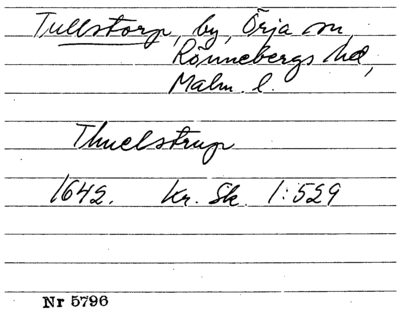 Tullstorp, by, Örja sn,
Rönnebergs hd,
Malm. l.
Thuelstrup
1642. Kr. Sk. 1:529
Nr 5796